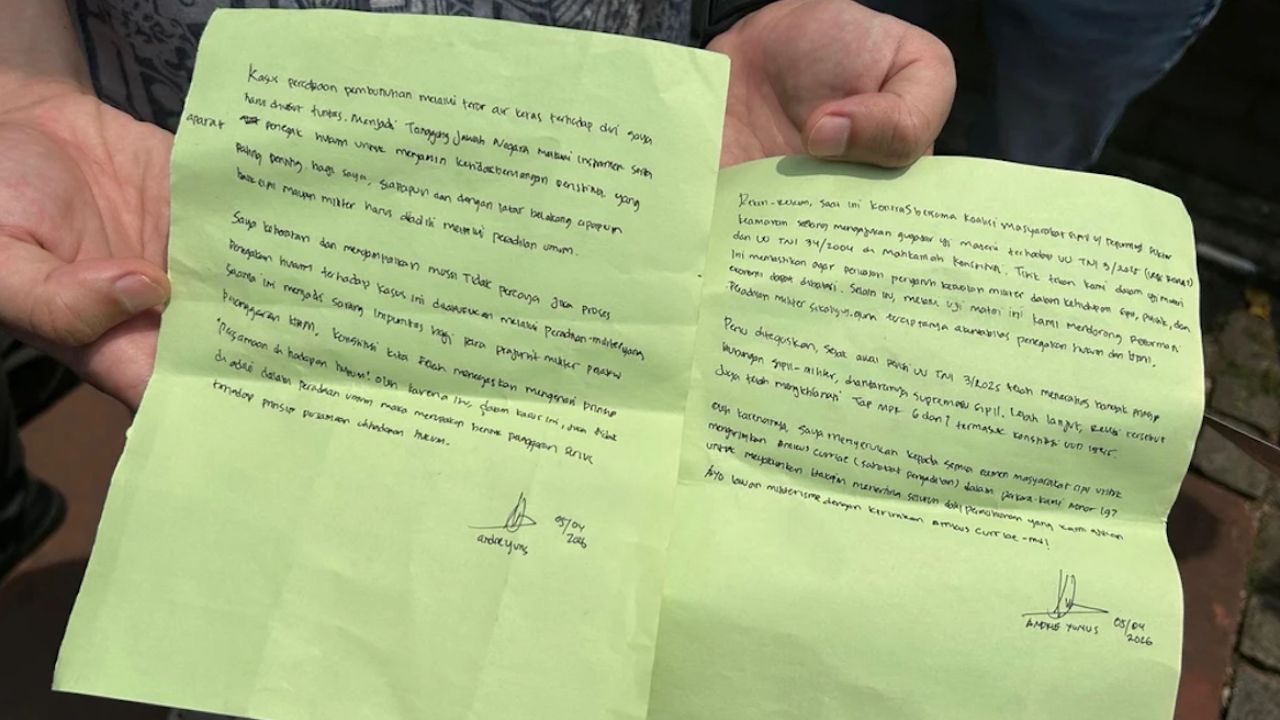 Kasus percobaan pembunuhan melalui teror air keras terhadap diri saya
harus diusut tuntas. Menjadi Tanggung Jawab Negara melalui instrumen serta
aparat penegak hukum untuk menjamin ketidakberulangan peristiwa. yang
paling penting, bagi saya, siapapun dan dengan latar belakang apapun
baik sipil maupun militer harus diadili melalui peradilan umum.
Saya keberatan dan menyampaikan mosi Tidak Percaya jika proses
Penegakan hukum terhadap kasus ini dilakukan melalui peradilan militer yang
selama ini menjadi sarang impunitas bagi para prajurit militer pelaku
pelanggaran HAM. Konstitusi kita telah menegaskan mengenai prinsip
"persamaan di hadapan hukum". Oleh karena itu, dalam kasus ini, jika tidak
di adili dalam peradilan umum maka merupakan bentuk pelanggaran serius
terhadap prinsip persamaan dihadapan hukum.
05/04
2026
andrie yunus
Rekan-rekan, saat ini KontraS bersama koalisi masyarakat sipil u/ reformasi sektor
keamanan sedang mengajukan gugatan uji materi terhadap UU TNI 3/2025
dan UU TNI 34/2004 di Mahkamah Konstitusi. Titik tekan kami dalam uji materi
ini memastikan agar perluasan pengaruh militer dalam kehidupan sipil, politik, dan
ekonomi dapat dibatasi. Selain itu, melalui uji materi ini kami mendorong Reformasi
Peradilan militer sekaligus guna terciptanya akuntabilitas penegakan hukum dan HAM.
Perlu ditegaskan, sejak awal revisi UU TNI 3/2025 telah menerabas banyak prinsip
hubungan sipil-militer, diantaranya supremasi sipil. Lebih lanjut, Revisi tersebut
juga telah mengkhianati TAP MPR 6 dan 7 termasuk konstitusi UUD 1945.
Oleh karenanya, saya menyerukan kepada semua elemen masyarakat sipil untuk
mengirimkan Amicus Curriae (sahabat pengadilan) dalam perkara kami nomor 197
untuk meyakinkan hakim menerima seluruh dalil permohonan yang kami ajukan
Ayo lawan militerisme dengan kirimkan Amicus Curriae-mu!
ANDRIE YUNUS
05/04
2026